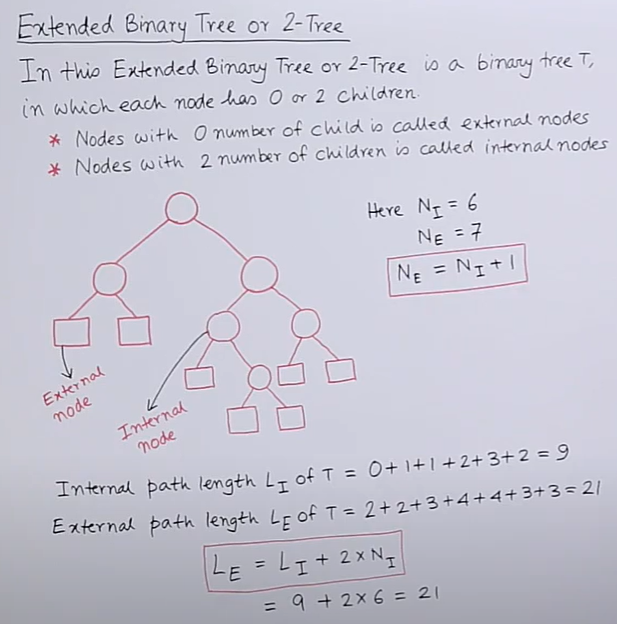 Extended Binary Tree or 2-Tree
In this Extended Binary Tree or 2-Tree is a binary tree T,
in which each node has 0 or 2 children.
* Nodes with 0 number of child is called external nodes
* Nodes with 2 number of children is called internal nodes
Here N_I = 6
N_E = 7
N_E = N_I + 1
External
node
Internal
node
Internal path length L_I of T = 0+1+1+2+3+2 = 9
External path length L_E of T = 2+2+3+4+4+3+3 = 21
L_E = L_I + 2 × N_I
= 9 + 2×6 = 21